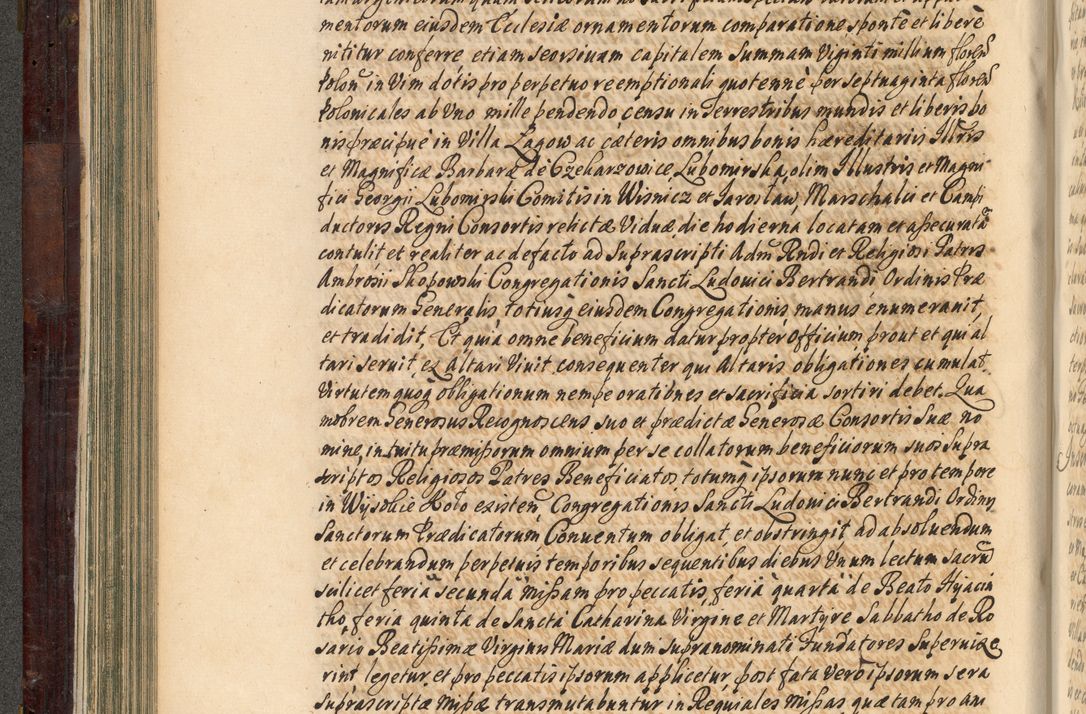 mentorum eiusdem Ecclesiæ ornamentorum comparatione sponte et liberè
nititur conferre etiam seorsivam capitalem Summam Viginti millium floren
Polon in Vim dotis pro perpetuo reemptionali quotennè per septuaginta floren
Polonicales ab Uno mille pendendo censu in Terrestribus mundis et liberis bo
nis præcipuè in Villa Łagow ac cæteris omnibus bonis hæreditariis Illris
et Magnificæ Barbaræ de Czekarzowice Lubomirska, olim Illustris et Magni
fici Georgii Lubomirski Comitis in Wisnicz et Jarosław, Marschalci et Campi
ductoris Regni Consortis relictæ Viduæ die hodierna locatam et assecuratã
contulit et realiter ac defacto ad Suprascripti Adm Rndi et Religiosi Patris
Ambrosii Skopowski Congregationis Sancti Ludovici Bertrandi Ordinis Præ
dicatorum Generalis totiusq eiusdem Congregationis manus enumeravit,
et tradidit. Et quia omne beneficium datur propter Officium prout et qui al
tari servit, ex Altari Vivit consequenter qui Altaris obligationes cumulat
Virtutem quoq obligationum nempe orationes et sacrificia sortiri debet. Qua
mobrem Generosus Recognoscens suo et prædictæ Generosæ Consortis Suæ no
mine, intuitu præmissorum omnium per se collatorum beneficiorum suos supra
scriptos Religiosos Patres Beneficiatos totumq ipsorum nunc et pro tempore
in Wysokie Koło existen Congregationis Sancti Ludovici Bertrandi Ordinis
Sanctorum Prædicatorum Conventum obligat, et obstringit ad absolvendum
et celebrandum perpetuis temporibus sequentibus diebus Unum lectum sacrũ
scilicet feria secunda Missam pro peccatis, feria quarta de Beato Hyacin
tho, feria quinta de Sancta Catharina Virgine et Martyre Sabbatho de Ro
sario Beatissimæ Virginis Mariæ dum supranominati Fundatores Supervixe
rint legetur, et pro peccatis ipsorum applicetur, post fata Vero ipsorum sera
Suprascriptæ Missæ transmutabuntur in Requiales Missas quæ tam pro ani